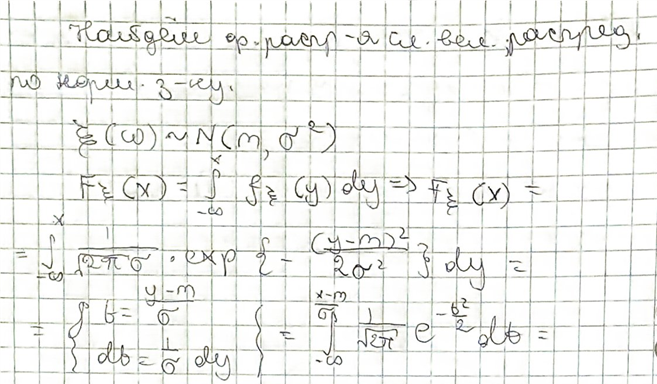 Найдём ф. распр-я сл. вел., распред.
по норм. з-ну.
ξ(ω) ~ N(m, σ²)
F_ξ(x) = ∫_{-∞}^{x} f_ξ(y) dy => F_ξ(x) =
= ∫_{-∞}^{x} 1/(√2π σ) · exp { - (y-m)²/2σ² } dy =
= { t = (y-m)/σ
dt = 1/σ dy } = ∫_{-∞}^{(x-m)/σ} 1/√2π e^{-t²/2} dt =